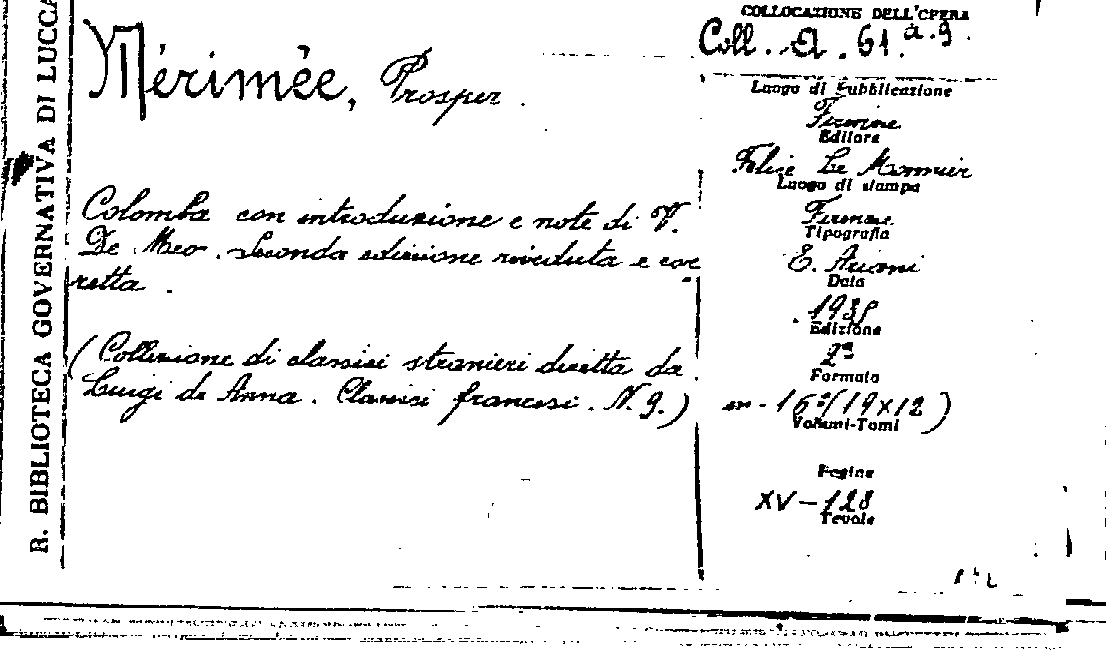 R. BIBLIOTECA GOVERNATIVA DI LUCCA
Mérimée, Prosper.
Colomba con introduzione e note di V.
De Meo. Seconda edizione riveduta e cor
retta.
(Collezione di classici stranieri diretta da
Luigi de Anna. Classici francesi. N. 9.)
COLLOCAZIONE DELL'OPERA
Coll. A. 61.a.9.
Luogo di Pubblicazione
Firenze
Editore
Felice Le Monnier
Luogo di stampa
Firenze
Tipografia
E. Ariani
Data
Edizione
2ª
Formato
in-16°(19x12)
Volumi-Tomi
Pagine
XV-128
Tavole